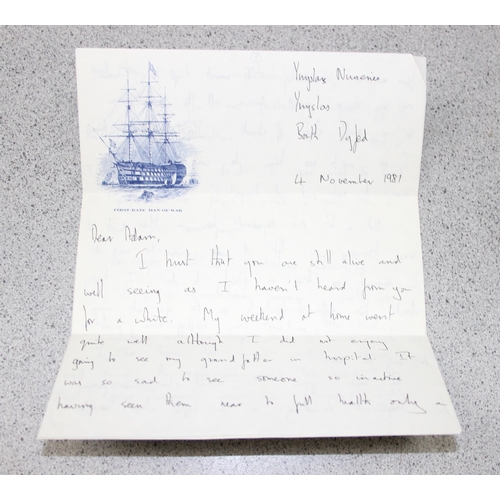 Ynyslas Nurseries
Ynyslas
Borth Dyfed
4 November 1981
FIRST-RATE MAN-OF-WAR
Dear Adam,
I trust that you are still alive and
well seeing as I haven't heard from you
for a while. My weekend at home went
quite well although I did not enjoy
going to see my grandfather in hospital It
was so sad to see someone so inactive
having seen them near to full health only a